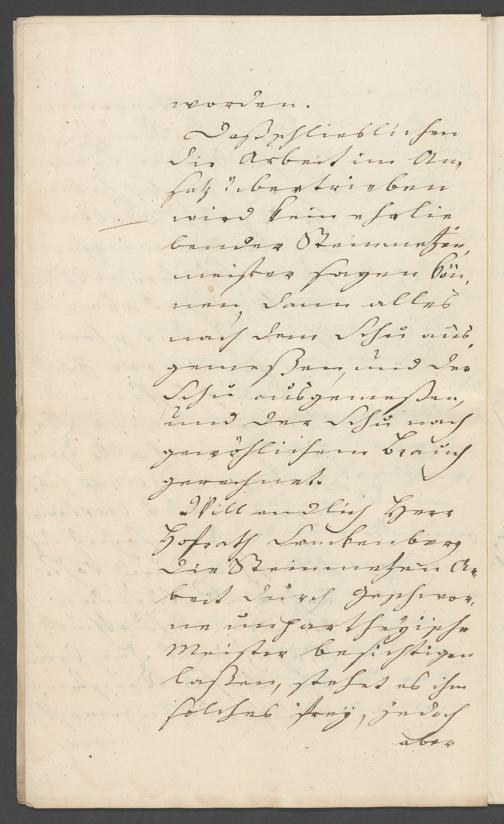 worden.
Daß schlieslichen
die Arbeit im An,
satz übertrieben
wird kein ehrlie
bender Steinmetzen,
meister sagen kön,
nen, dann alles
nach dem Schu aus,
gemeßen, und der
Schu ausgemeßen,
und der Schu nach
gewöhlichem Brauch
gerechnet.
Will endlich Herr
Hofrath Senkenberg
die Steinmetzen Ar
beit durch Geschwor,
ne unpartheyische
Meister besichtigen
laßen, stehet es ihm
solches frey, jedoch
aber